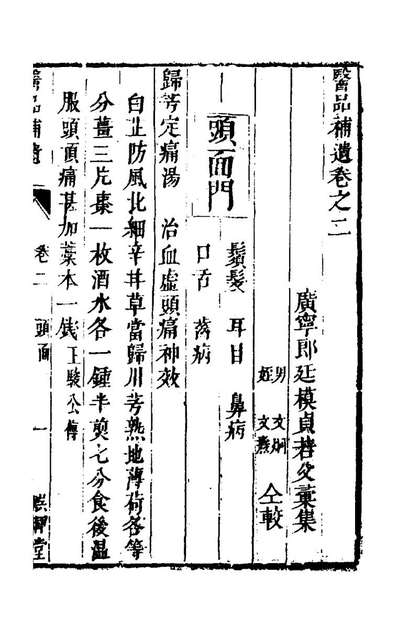 醫品補遺卷之二
廣寧郎廷模貞若父彙集
男 文炯
姪 文燕
仝較
頭面門
鬚髮 耳目 鼻病
口舌 齒病
歸芎定痛湯 治血虛頭痛神效
白芷防風北細辛甘草當歸川芎熟地薄荷各等
分薑三片棗一枚酒水各一鍾半煎七分食後溫
服頭頂痛甚加藁本一錢王駿公傳
醫品補遺
卷二 頭面 一
堂